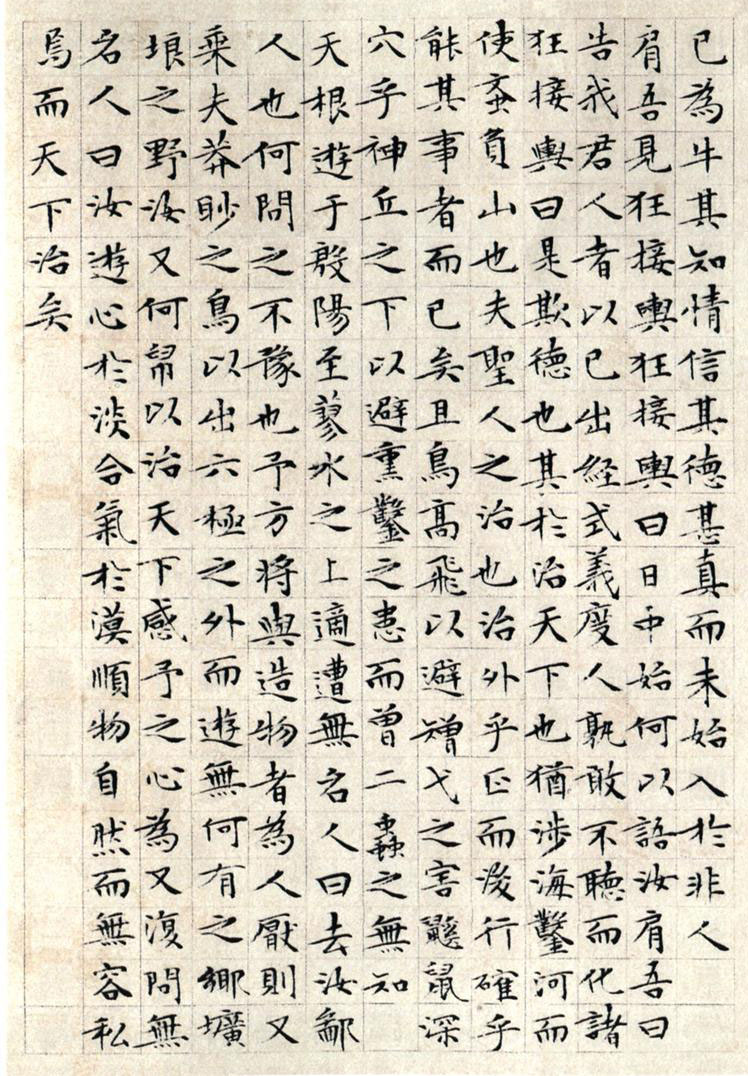 已為牛其知情信其德甚真而未始入於非人
肩吾見狂接輿狂接輿曰日中始何以語汝肩吾曰
告我君人者以已出経式義度人孰敢不聽而化諸
狂接輿曰是欺德也其於治天下也猶涉海鑿河而
使蚉負山也夫聖人之治也治外乎正而後行確乎
能其事者而已矣且鳥高飛以避矰弋之害鼷鼠深
穴乎神丘之下以避熏鑿之患而曾二蟲之無知
天根遊于殷陽至蓼水之上適遭無名人曰去汝鄙
人也何問之不豫也予方將與造物者為人厭則又
乘夫莽眇之鳥以出六極之外而遊無何有之鄉壙
埌之野汝又何帠以治天下感予之心為又復問無
名人曰汝遊心於淡合氣於漠順物自然而無容私
焉而天下治矣